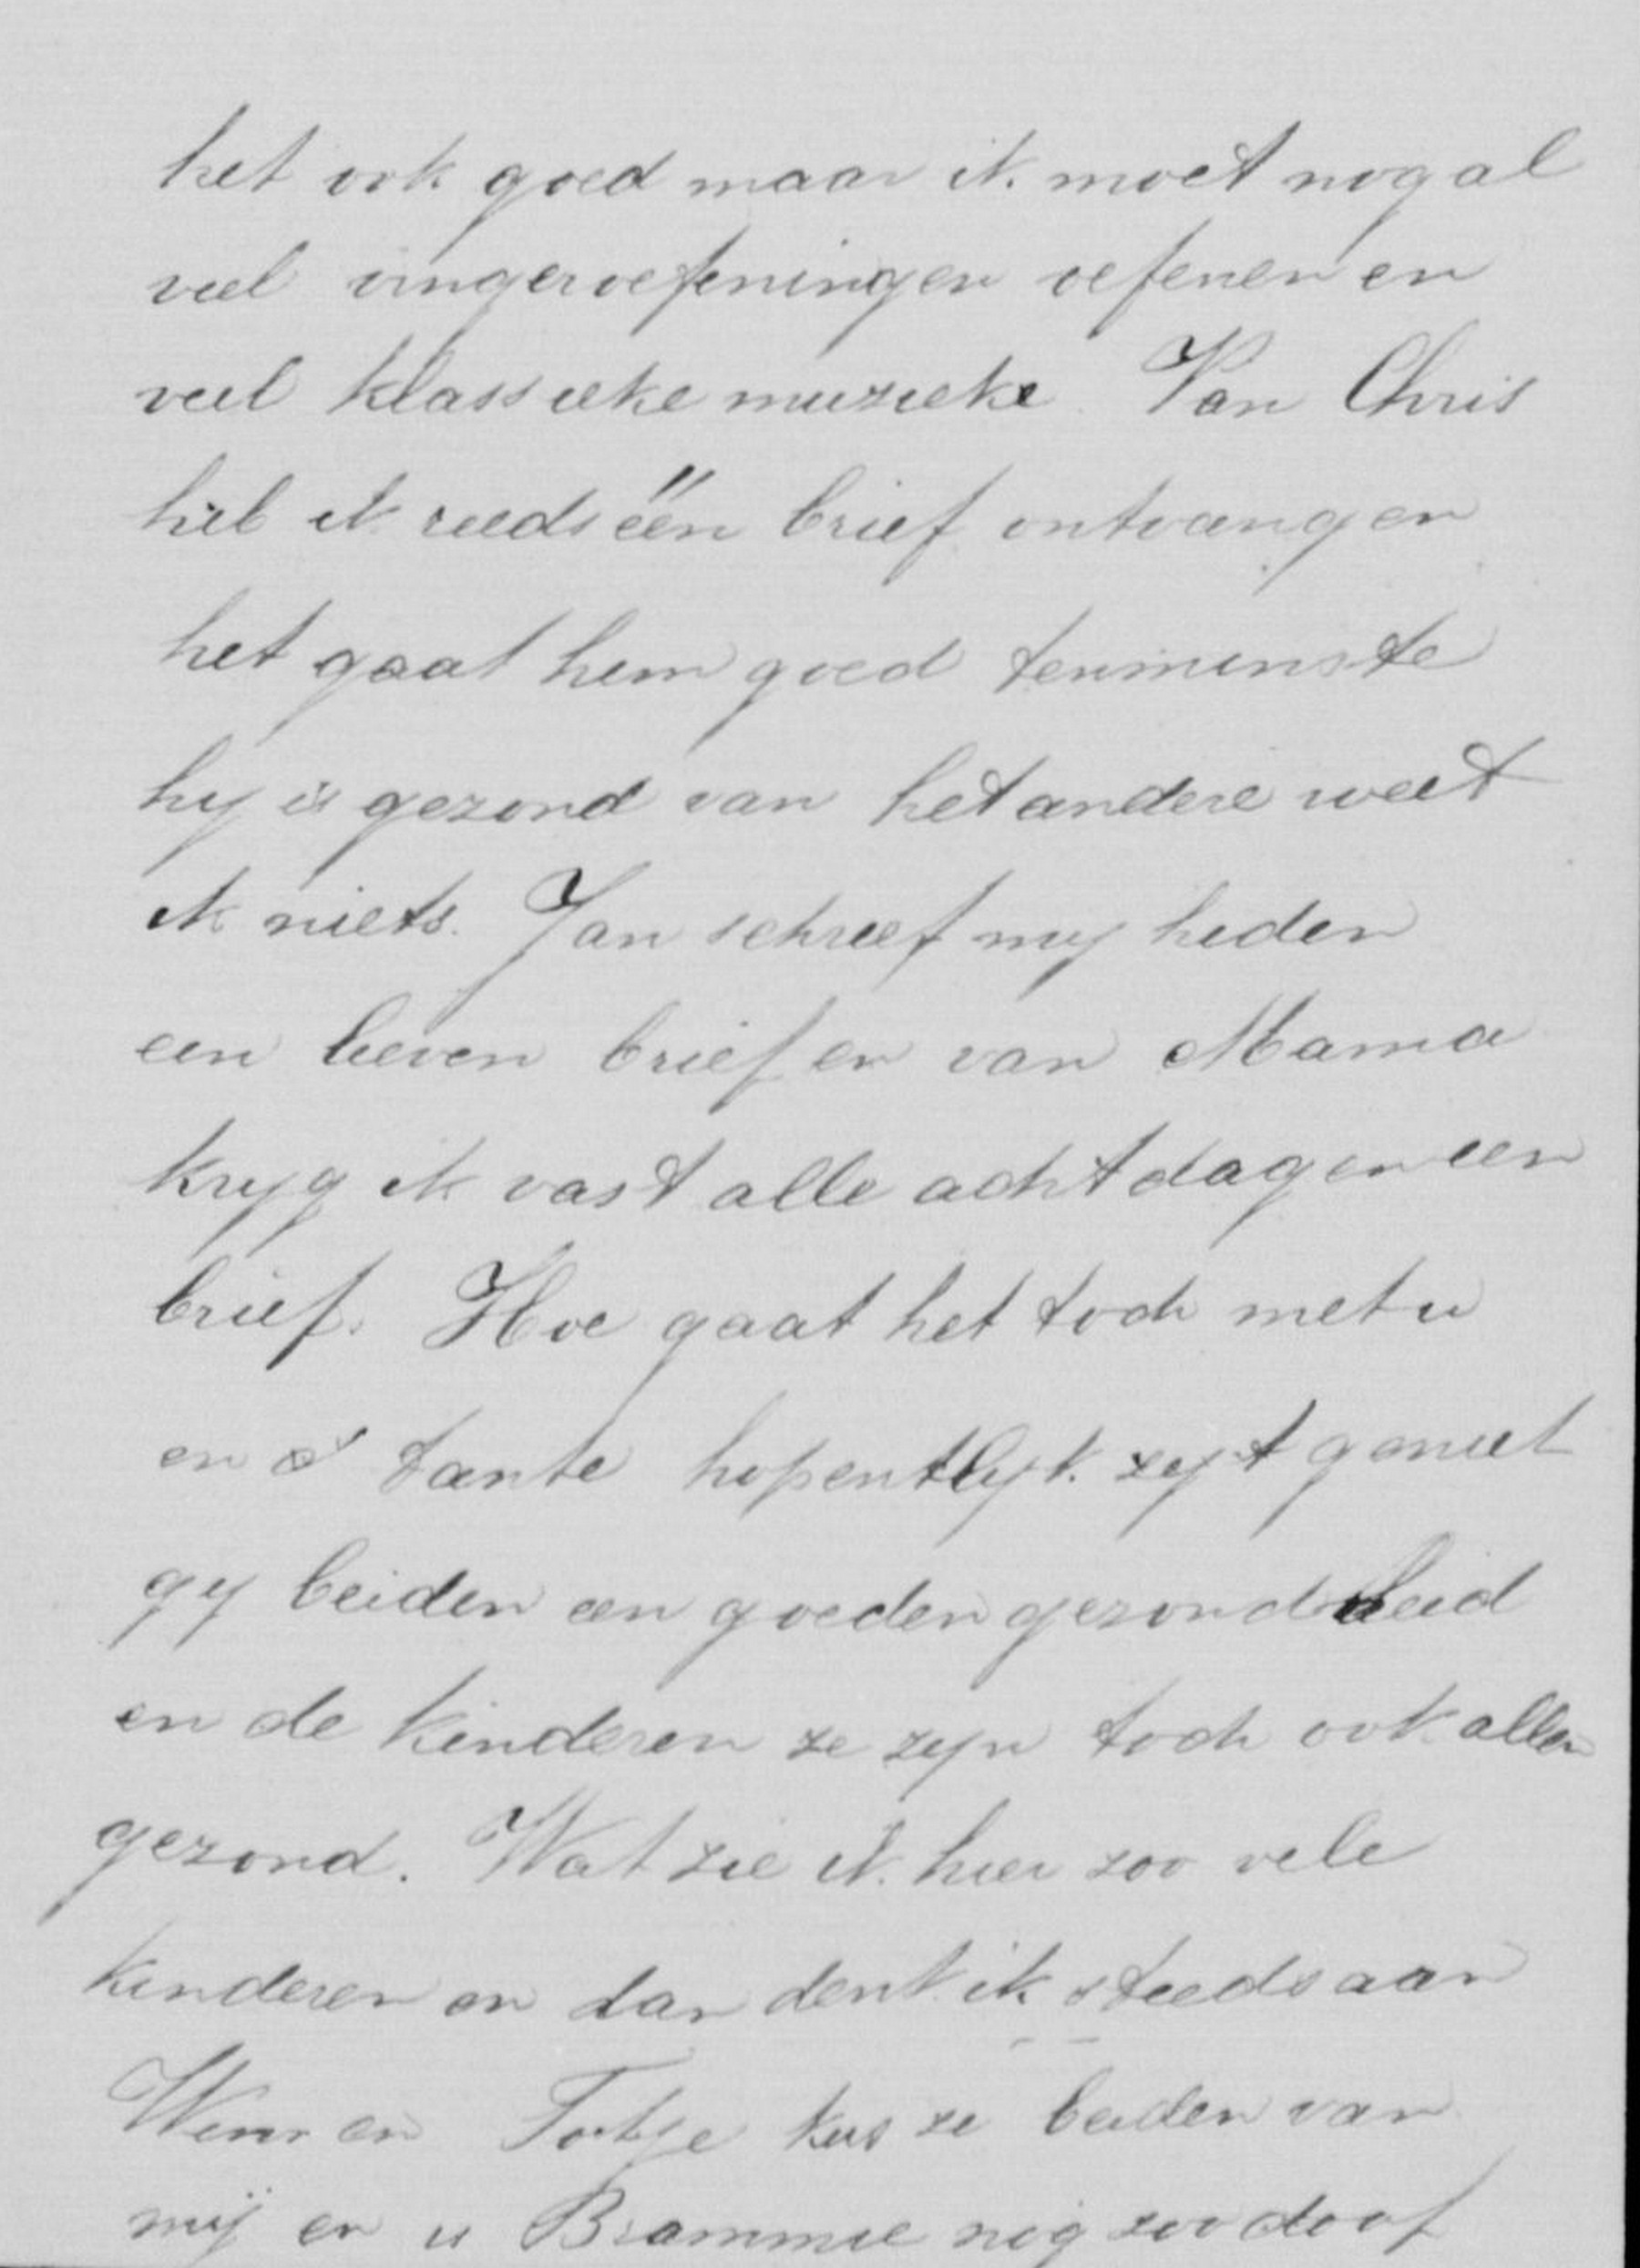 het ook goed maar ik moet nog al
veel vingeroefeningen oefenen en
veel klassieke muzieke. Van Chris
heb ik reeds één brief ontvangen
het gaat hem goed tenminste
hy is gezond van het andere weet
ik niets. Jan schreef my heden
een lieven brief en van Mama
kryg ik vast alle acht dagen een
brief. Hoe gaat het toch met u
en tante hopentlyk zyt geniet
gy beiden een goeden gezondheid
en de kinderen ze zyn toch ook allen
gezond. Wat zie ik hier zoo vele
kinderen en dan denk ik steeds aan
Wim en Totje kus ze beiden van
mij en is Brammie nog zoo doof